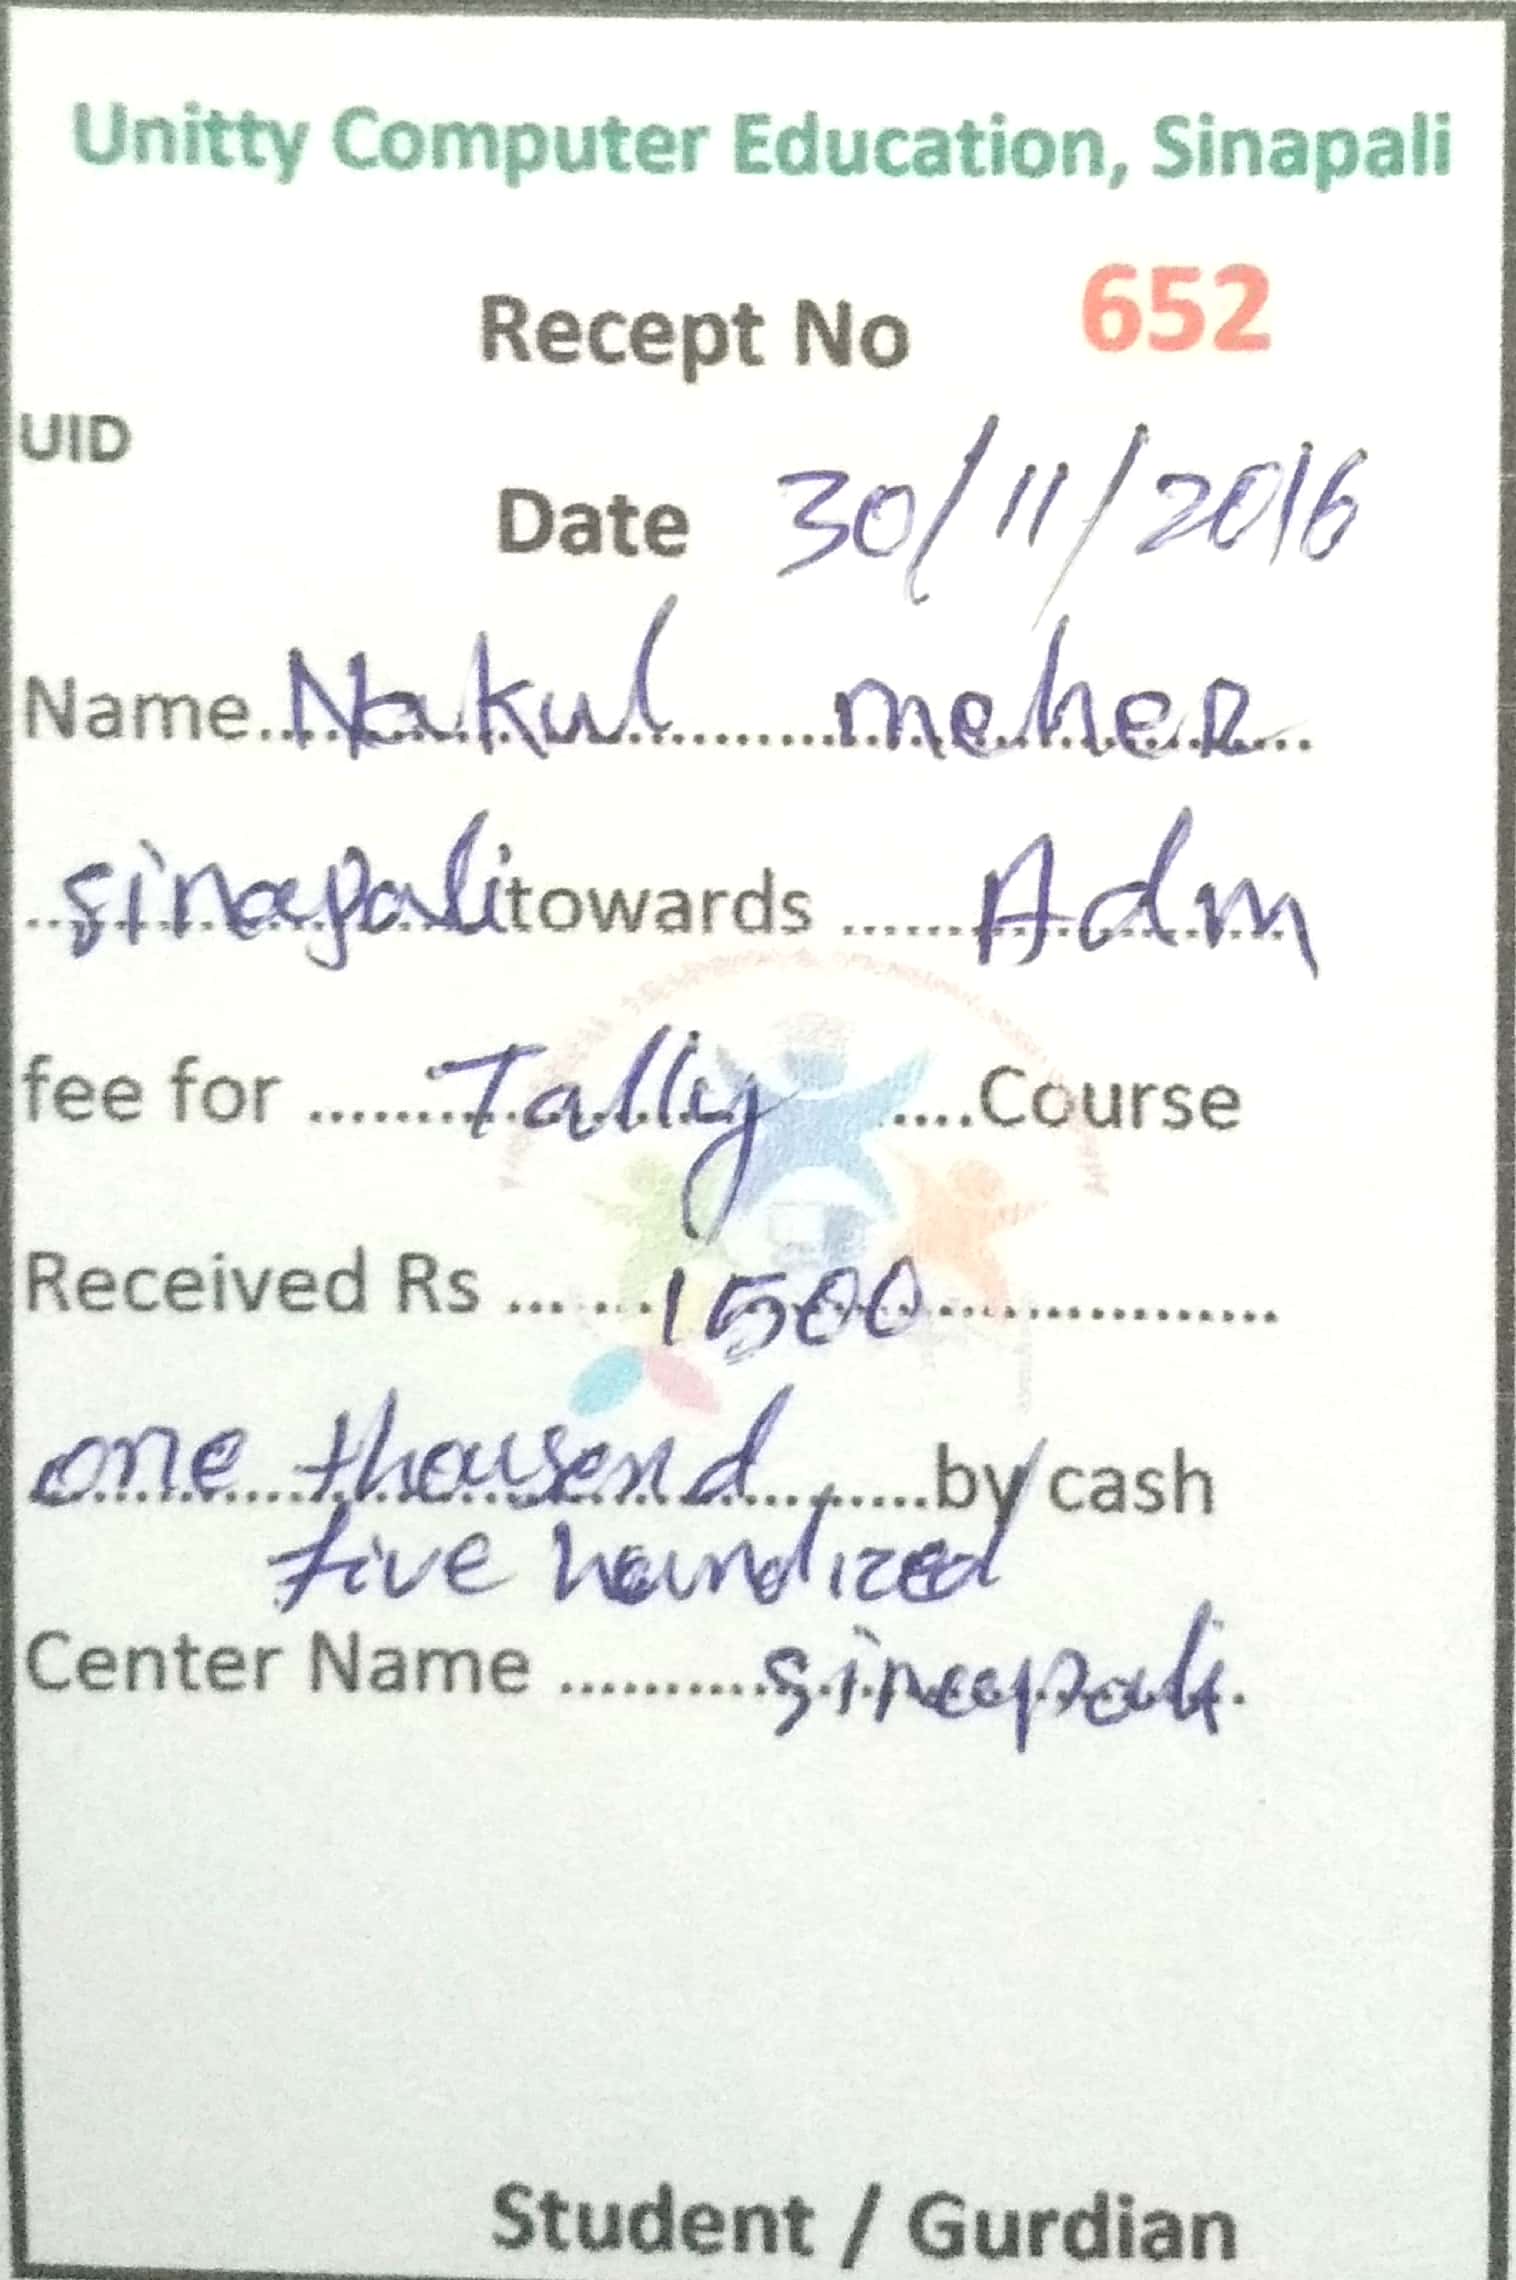 Unitty Computer Education, Sinapali
Recept No 652
UID
Date 30/11/2016
Name Nakul meher
sinapali towards Adm
fee for Tally Course
Received Rs 1500
one thousend by cash
five hundred
Center Name sinapali
Student / Gurdian